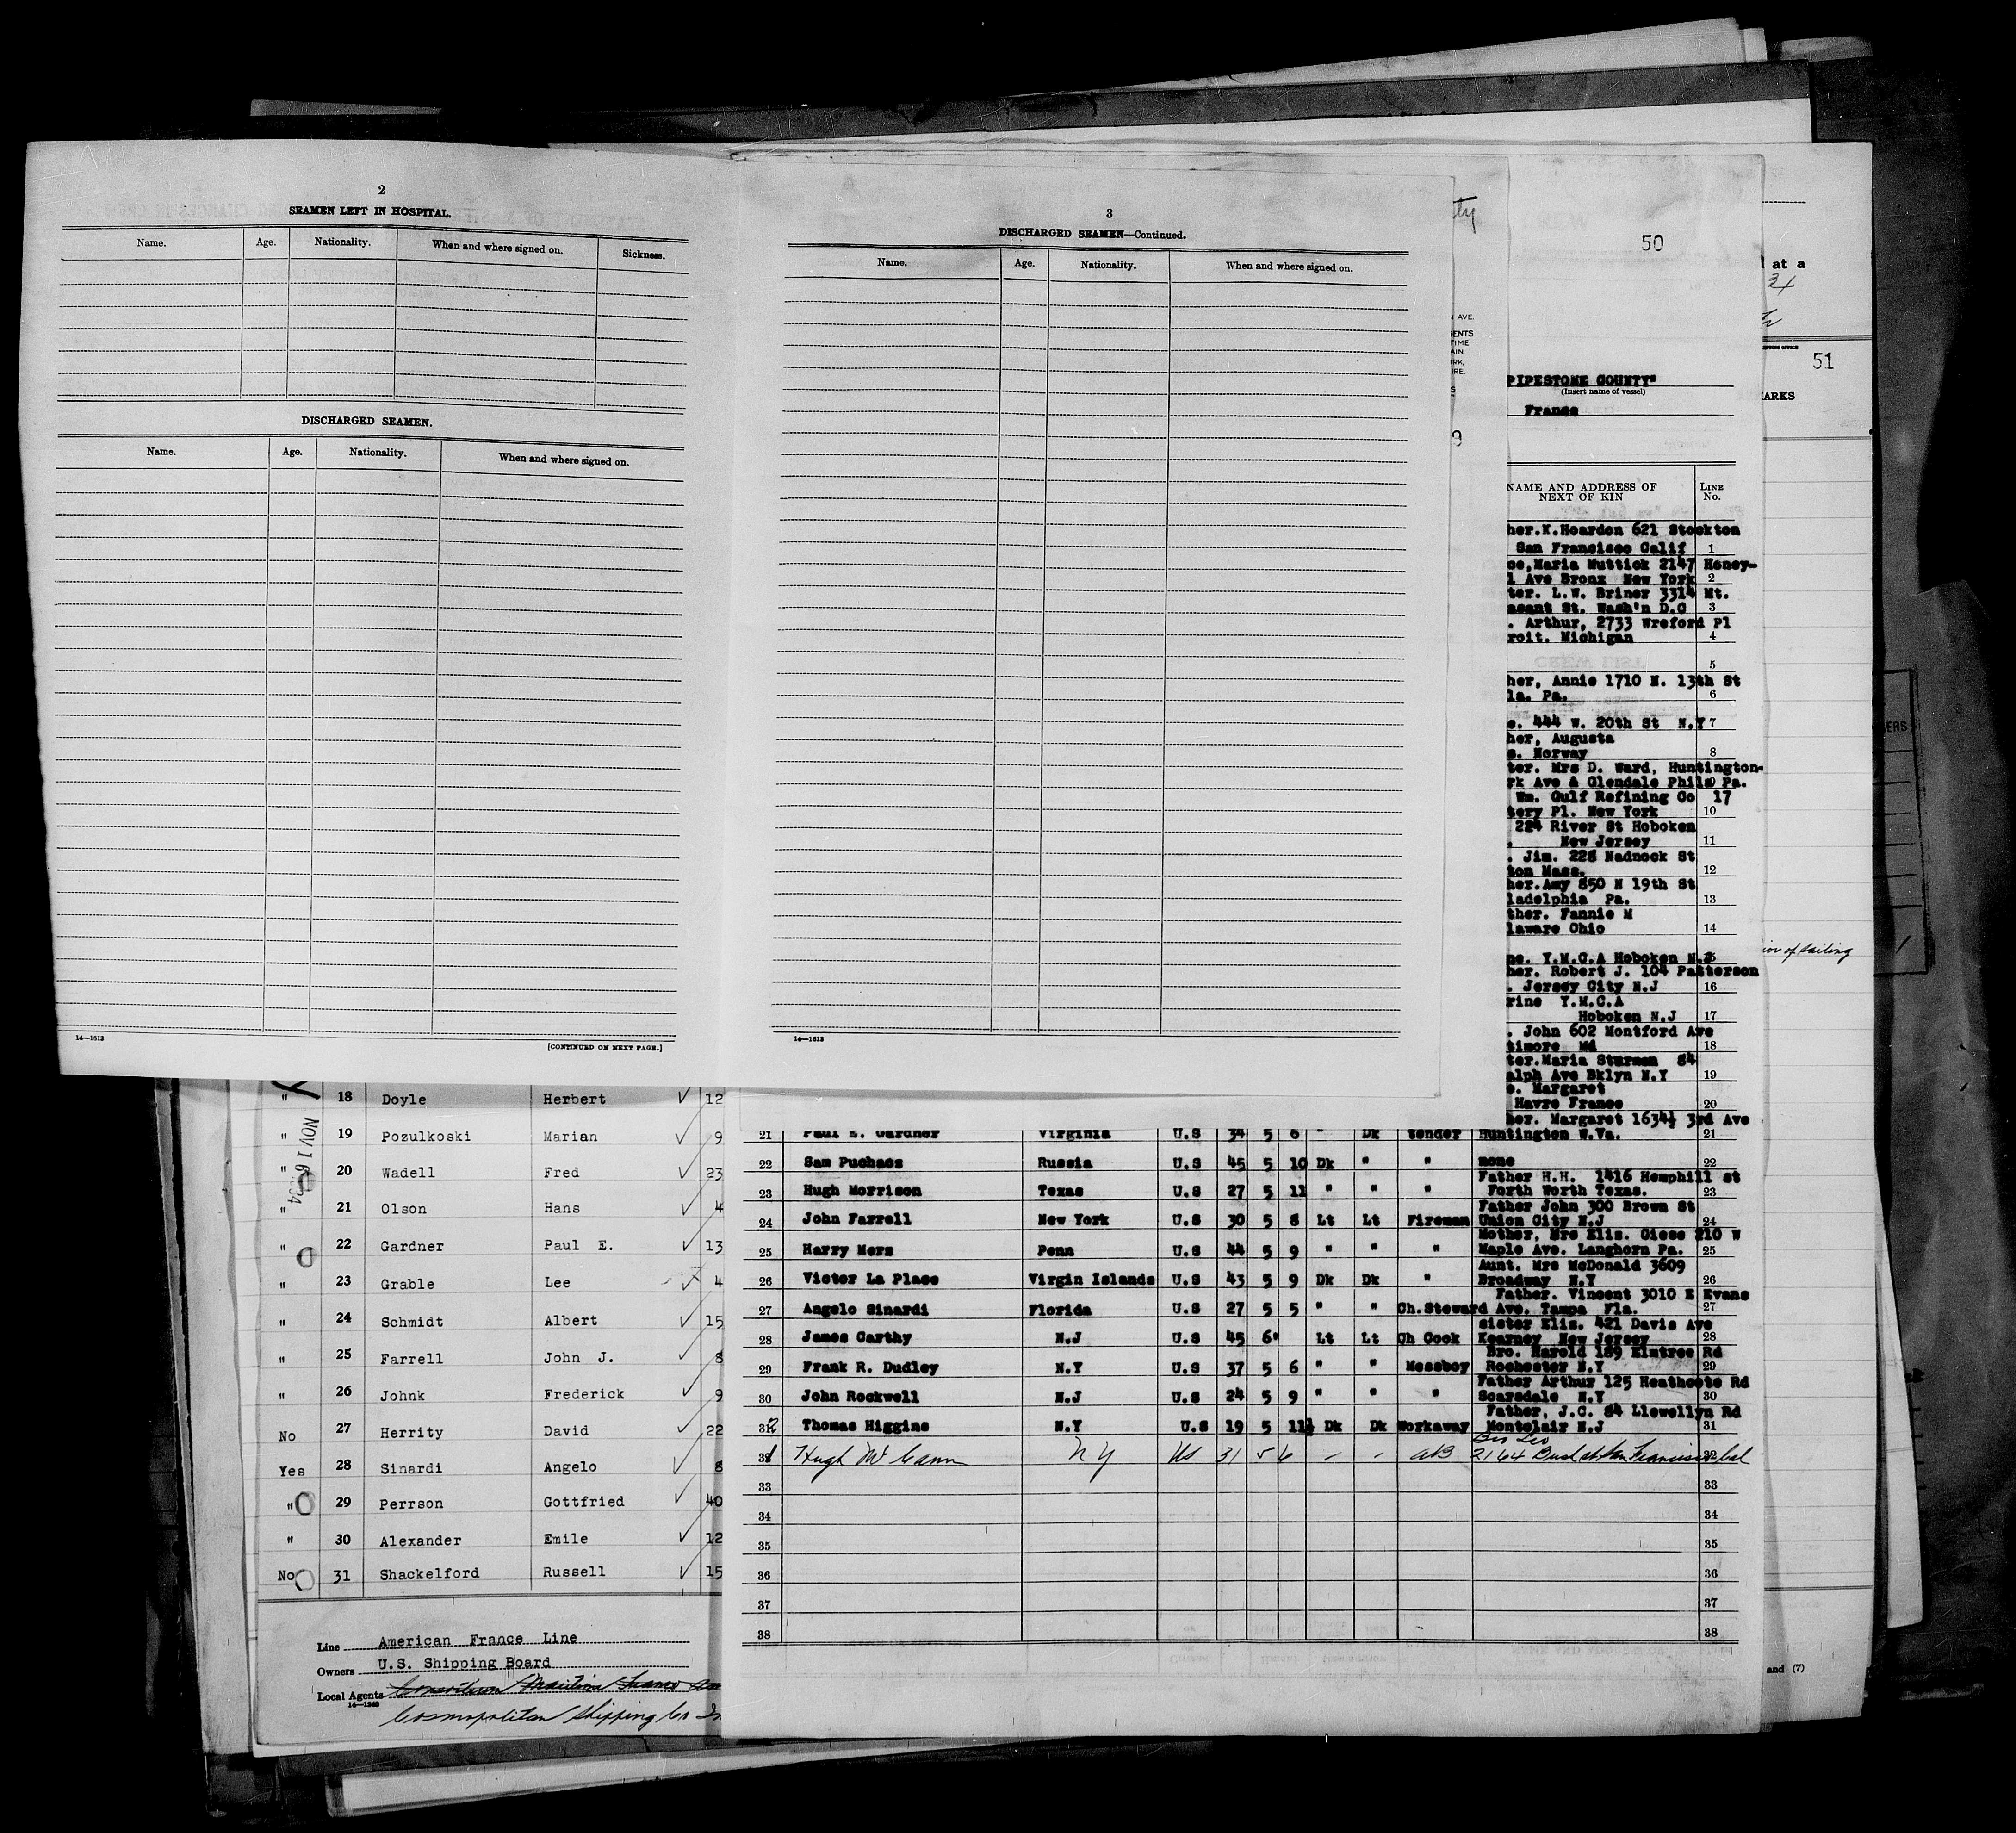 2
SEAMEN LEFT IN HOSPITAL.
Name. Age. Nationality. When and where signed on. Sickness.
DISCHARGED SEAMEN.
Name. Age. Nationality. When and where signed on.
14—1613
[CONTINUED ON NEXT PAGE.]
3
DISCHARGED SEAMEN—Continued.
Name. Age. Nationality. When and where signed on.
14—1613
ty
AVE.
ENTS
TIME
AIN.
RK,
IRE.
S
9
50
PIPESTONE COUNTY"
(Insert name of vessel)
France
NAME AND ADDRESS OF NEXT OF KIN
LINE No.
her.K.Heardon 621 Stockton
San Francisco Calif 1
ce,Maria Muttick 2147 Honey-
l Ave Bronx New York 2
ter. L.W. Briner 3314 Mt.
asant St. Wash'n D.C 3
. Arthur, 2733 Wreford Pl
roit. Michigan 4
5
her, Annie 1710 N. 13th St
la. Pa. 6
e. 444 W. 20th St N.Y 7
her, Augusta
s. Norway 8
ter. Mrs D. Ward, Huntington-
rk Ave & Glendale Phila Pa.
Wm. Gulf Refining Co 17
tery Pl. New York 10
224 River St Hoboken
. New Jersey 11
. Jim. 228 Nadnock St
ton Mass. 12
her.Amy 850 N 19th St
ladelphia Pa. 13
ther. Fannie M
laware Ohio 14
ne. Y.M.C.A Hoboken N.J
her. Robert J. 104 Patterson
. Jersey City N.J 16
rine Y.M.C.A
Hoboken N.J 17
. John 602 Montford Ave
timore Md 18
ter.Maria Sturmen 84
alph Ave Bklyn N.Y 19
e. Margaret
Havre France 20
her. Margaret 1634½ 3rd Ave
21 Paul E. Gardner Virginia U.S 34 5 6 " Dk Tender Huntington W.Va. 21
22 Sam Puchacs Russia U.S 45 5 10 Dk " " none 22
Father H.H. 1416 Hemphill st
23 Hugh Morrison Texas U.S 27 5 11 " " " Forth Worth Texas. 23
Father John 300 Brown St
24 John Farrell New York U.S 30 5 8 Lt Lt Fireman Union City N.J 24
Mother, Mrs Eliz. Giese 210 W
25 Harry Mers Penn U.S 44 5 9 " " " Maple Ave. Langhorn Pa. 25
Aunt. Mrs McDonald 3609
26 Victor La Place Virgin Islands U.S 43 5 9 Dk Dk " Broadway N.Y 26
Father. Vincent 3010 E Evans
27 Angelo Sinardi Florida U.S 27 5 5 " " Ch.Steward Ave. Tampa Fla. 27
sister Eliz. 421 Davis Ave
28 James Carthy N.J U.S 45 6' Lt Lt Ch Cook Kearney New Jersey 28
Bro. Harold 189 Elmtree Rd
29 Frank R. Dudley N.Y U.S 37 5 6 " " Messboy Rochester N.Y 29
Father Arthur 125 Heathcote Rd
30 John Rockwell N.J U.S 24 5 9 " " " Scarsdale N.Y 30
Father, J.C. 84 Llewellyn Rd
Thomas Higgins N.Y U.S 19 5 11½ Dk Dk Workaway Montclair N.J 31
Bro Leo
Hugh McCann NY US 31 5 6 " " AB 2164 Bush st. San Francisco Cal 32
33 33
34 34
35 35
36 36
37 37
38 38
" 18 Doyle Herbert ✓ 12
" 19 Pozulkoski Marian ✓ 9
" 20 Wadell Fred ✓ 23
" 21 Olson Hans ✓ 4
" 22 Gardner Paul E. ✓ 13
" 23 Grable Lee 4
" 24 Schmidt Albert ✓ 15
" 25 Farrell John J. ✓ 8
" 26 Johnk Frederick ✓ 9
No 27 Herrity David ✓ 22
Yes 28 Sinardi Angelo ✓ 8
" 29 Perrson Gottfried ✓ 40
" 30 Alexander Emile ✓ 12
No 31 Shackelford Russell ✓ 15
NOV 16
Line American France Line
Owners U.S. Shipping Board
Local Agents
14—1240
Cosmopolitan Shipping Co
at a
34
51
ARKS
of sailing
and (7)
ERS